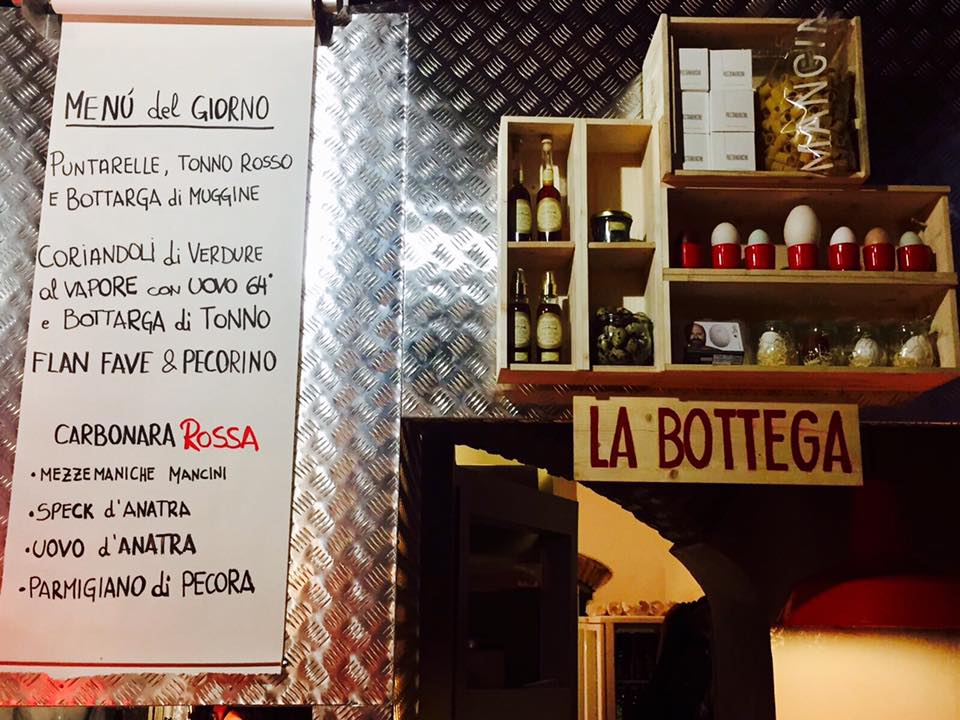 MENÚ del GIORNO
PUNTARELLE, TONNO ROSSO
E BOTTARGA di MUGGINE
CORIANDOLI di VERDURE
al VAPORE CON UOVO 64°
e BOTTARGA di TONNO
FLAN FAVE & PECORINO
CARBONARA ROSSA
• MEZZEMANICHE MANCINI
• SPECK d'ANATRA
• UOVO d'ANATRA
• PARMIGIANO di PECORA
MANCINI
LA BOTTEGA